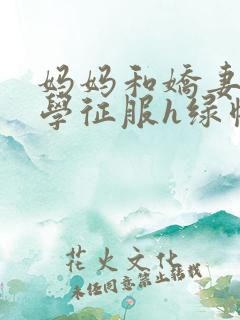 妈妈和嬌妻
學征服h绿
花火文化
未经同意禁止转载